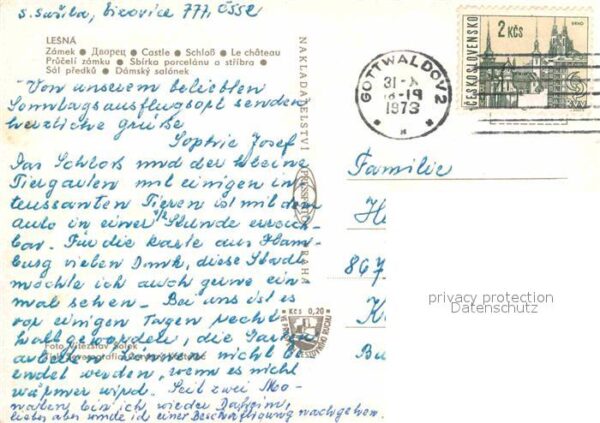 S. Sušila, Bzovice 777, ČSSR
LEŠNÁ
Zámek ● Дворец ● Castle ● Schloß ● Le château
Průčelí zámku ● Sbírka porcelánu a stříbra ●
Sál předků ● Dámský salónek
Von unserem beliebten
Sonntagsausflugsort senden
herzliche Grüße
Sophie Josef
Das Schloß und der kleine
Tiergarten mit einigen in
teressanten Tieren ist mit dem
Auto in einer 1/2 Stunde erreich-
bar. Für die Karte aus Ham-
burg vielen Dank, diese Stadt
möchte ich auch gerne ein
mal sehen. – Bei uns ist es
vor einigen Tagen recht
kalt geworden, die Garten
arbeiten können nicht be
endet werden, wenn es nicht
wärmer wird. Seit zwei Mo-
naten bin ich wieder Daheim,
lieber aber würde ich einer Beschäftigung nachgehen.
Foto Vítězslav
NAKLADATELSTVÍ PRESSFOTO PRAHA
Kčs 0,20
GOTTWALDOV 2
1973
2 KČS
BRNO
ČESKOSLOVENSKO
Familie
H
867
K
Bu
privacy protection
Datenschutz